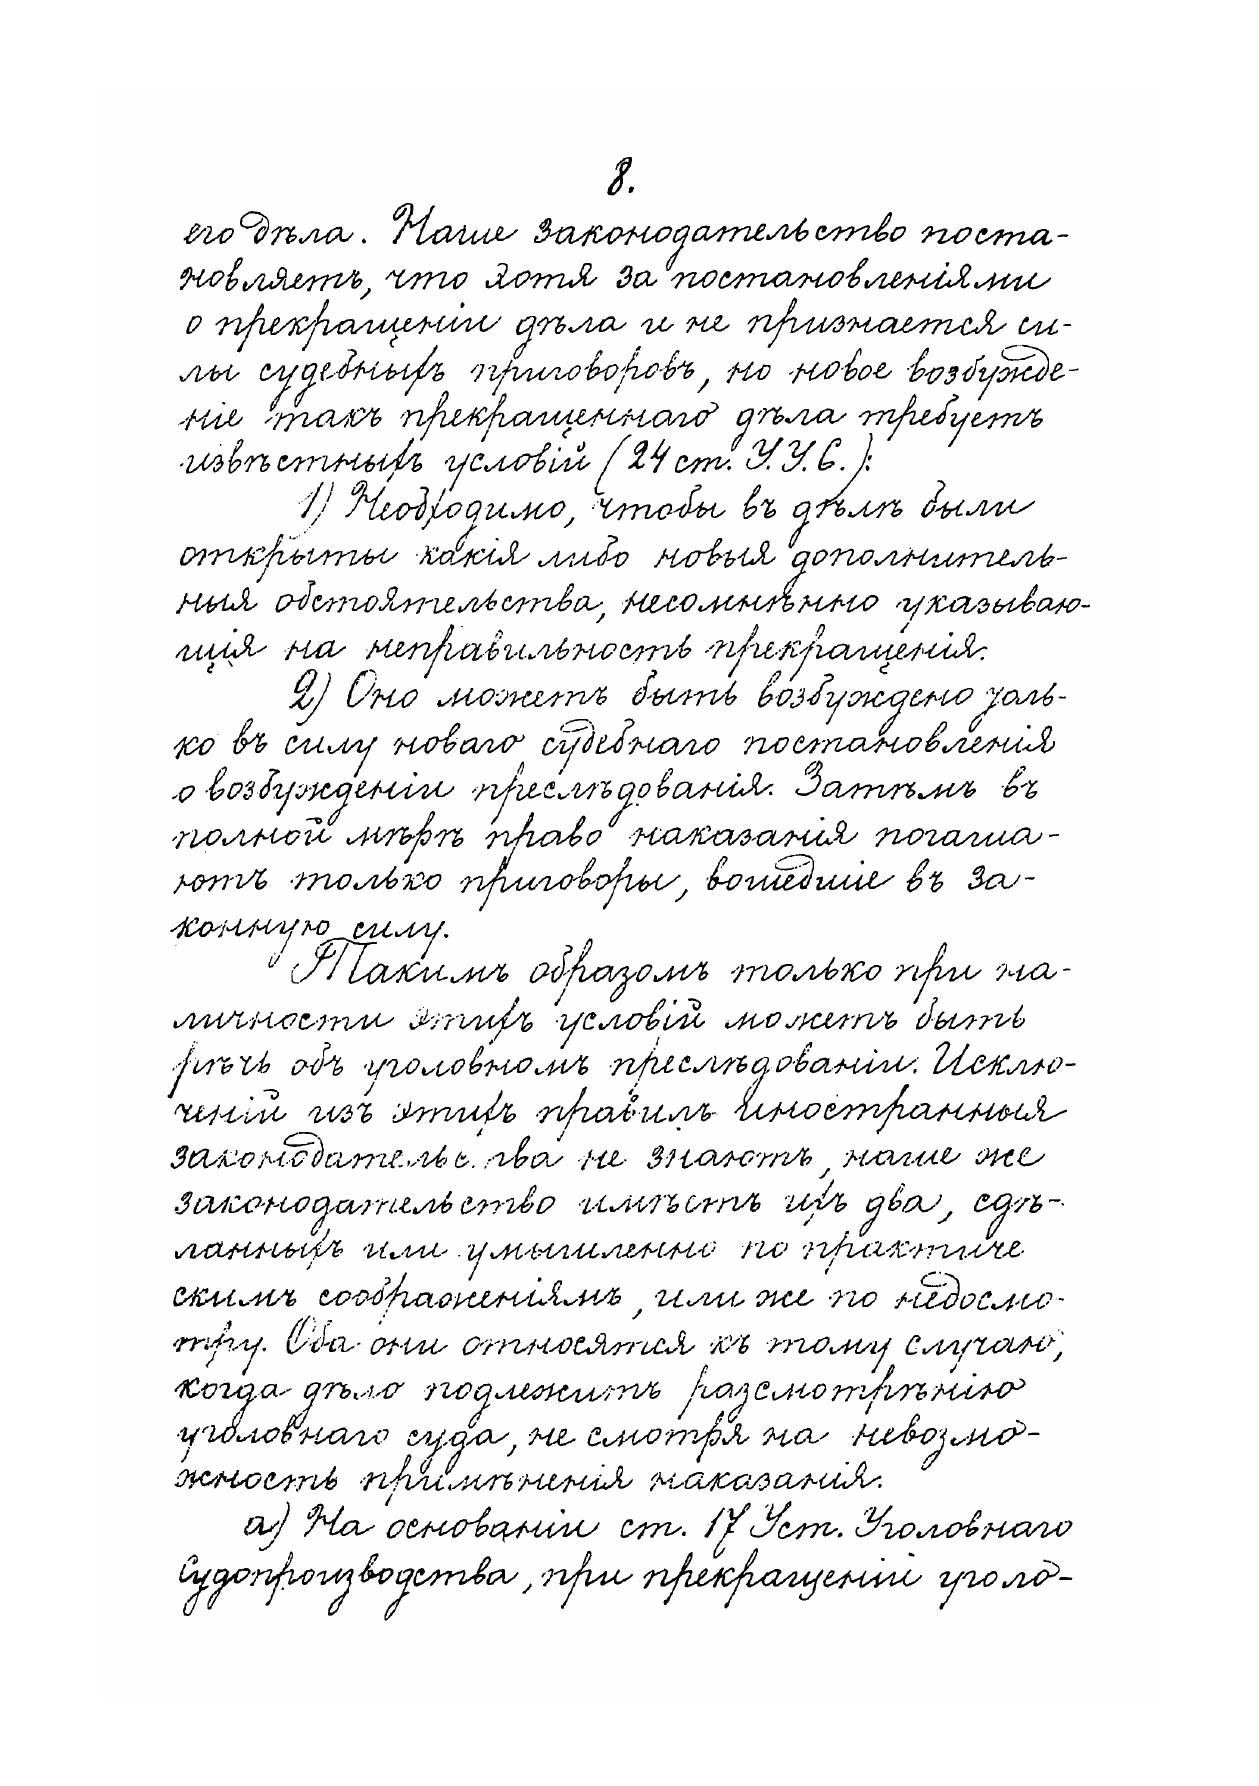 8.
его дѣла. Наше законодательство поста-
новляетъ, что хотя за постановленіями
о прекращеніи дѣла и не признается си-
лы судебныхъ приговоровъ, но новое возбужде-
ніе такъ прекращеннаго дѣла требуетъ
извѣстныхъ условій (24 ст. У. У. С.):
1) Необходимо, чтобы въ дѣлѣ были
открыты какія либо новыя дополнитель-
ныя обстоятельства, несомнѣнно указываю-
щія на неправильность прекращенія.
2) Оно можетъ быть возбуждено толь-
ко въ силу новаго судебнаго постановленія
о возбужденіи преслѣдованія. Затѣмъ въ
полной мѣрѣ право наказанія погаша-
ютъ только приговоры, вошедшіе въ за-
конную силу.
Такимъ образомъ только при на-
личности этихъ условій можетъ быть
рѣчь объ уголовномъ преслѣдованіи. Исклю-
ченій изъ этихъ правилъ иностранныя
законодательства не знаютъ, наше же
законодательство имѣетъ ихъ два, сдѣ-
ланныхъ или умышленно по практиче
скимъ соображеніямъ, или же по недосмо-
тру. Оба они относятся къ тому случаю,
когда дѣло подлежитъ разсмотрѣнію
уголовнаго суда, не смотря на невозмо-
жность примѣненія наказанія.
а) На основаніи ст. 17 Уст. Уголовнаго
Судопроизводства, при прекращеніи уголо-